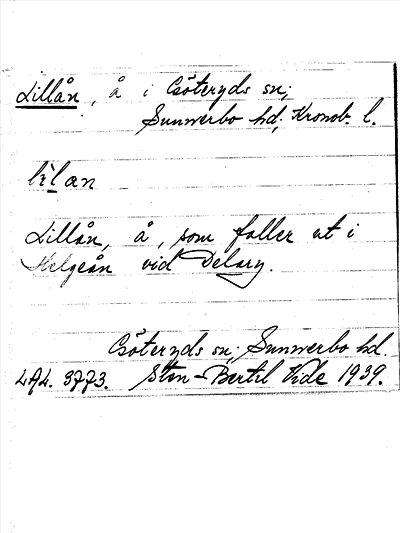 Lillån, å i Göteryds sn;
Sunnerbo hd; Kronob. l.
lìlan
Lillån, å, som faller ut i
Helgeån vid Delary.
Göteryds sn; Sunnerbo hd.
LAL. 3773. Sten-Bertil Vide 1939.